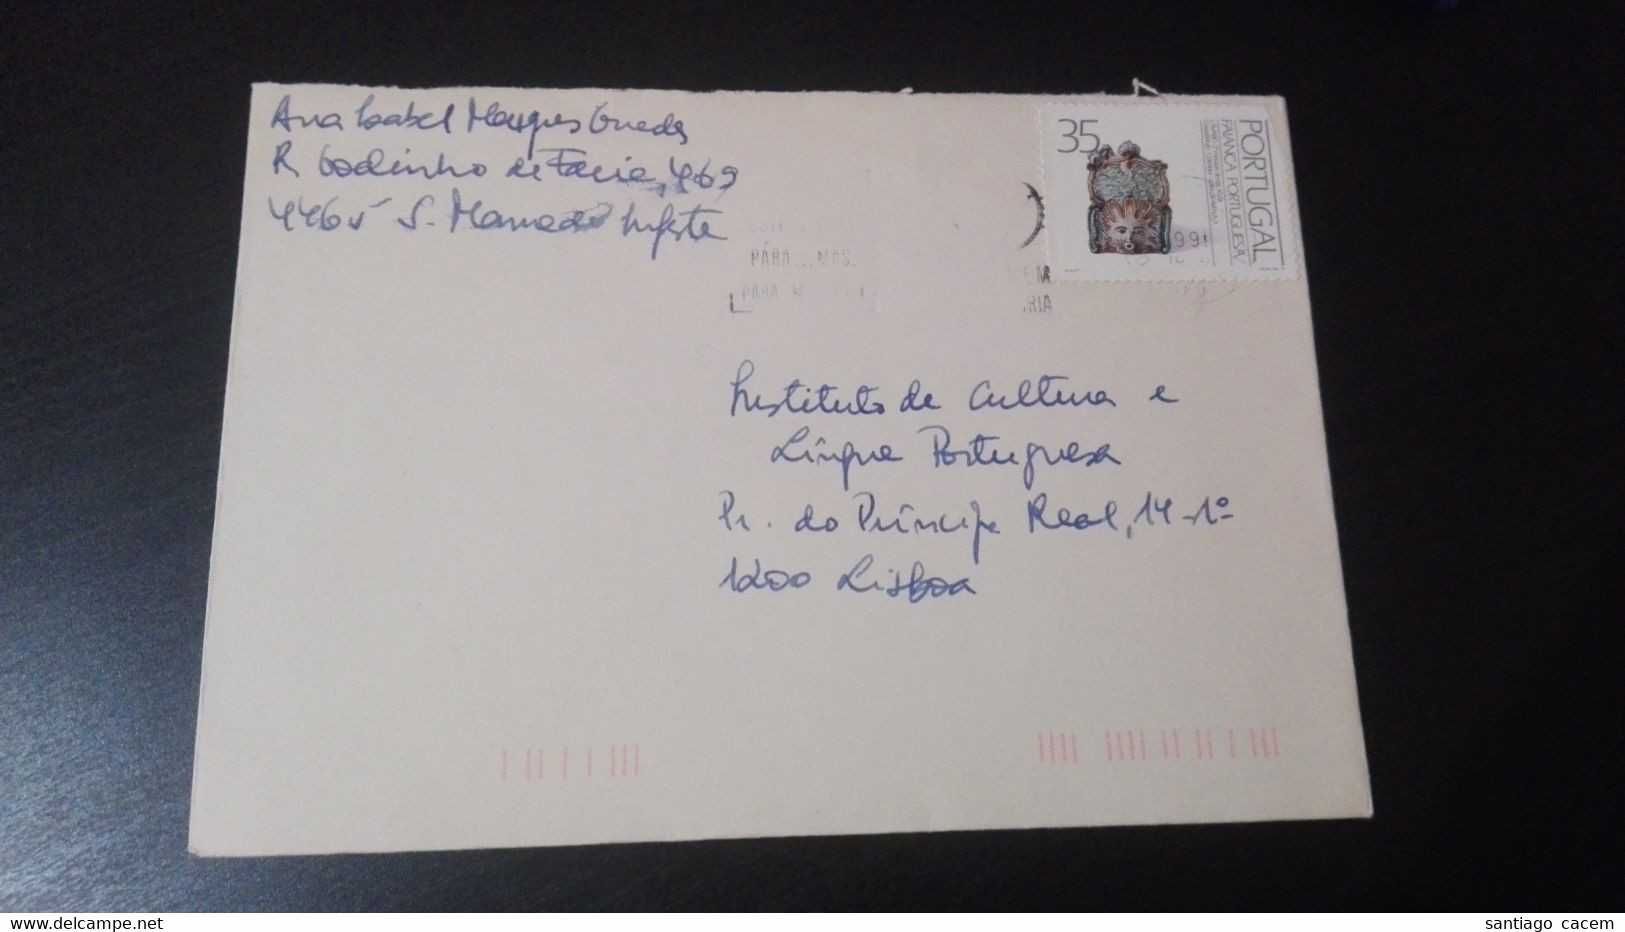 Ana Isabel Marques Guedes
R. Godinho de Faria, 469
4465 S. Mamede Infesta
35
PORTUGAL
FAIANÇA PORTUGUESA
PÁRA MAS
PARA
Instituto de Cultura e
Língua Portuguesa
Pr. do Príncipe Real, 14-1º
1200 Lisboa
www.delcampe.net
santiago cacem